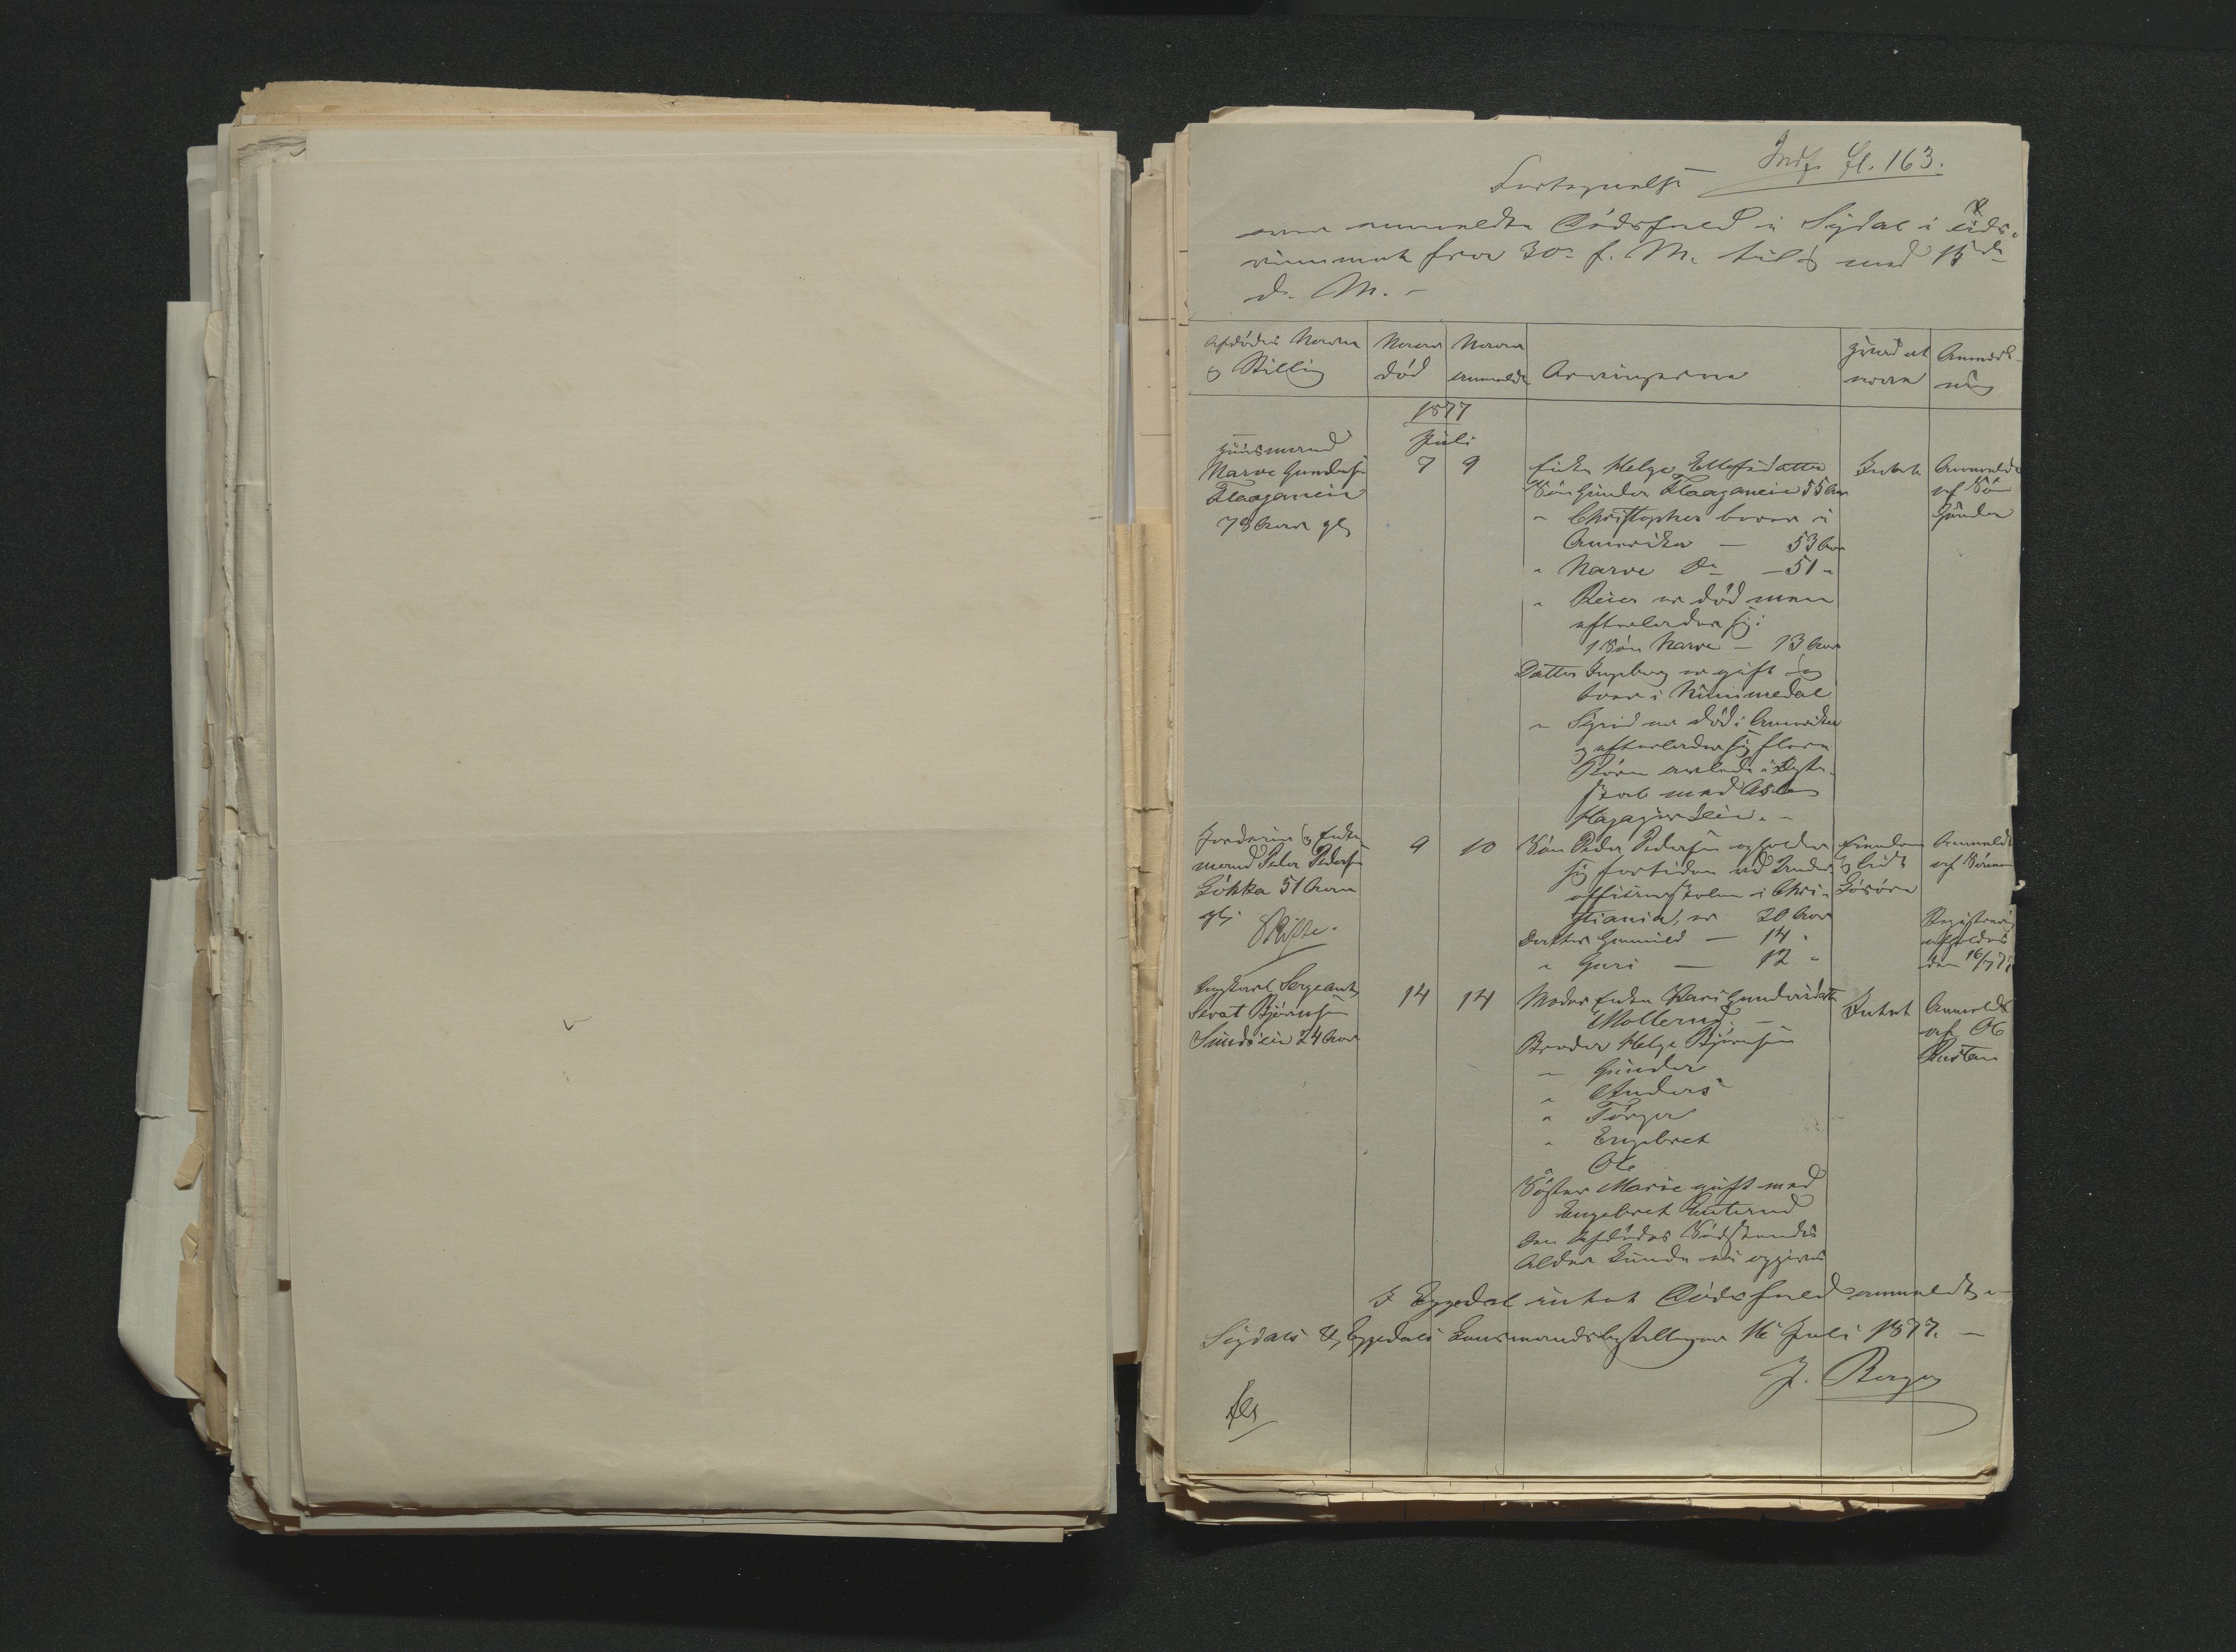 Indf. fl. 163.
Fortegnelse
over anmeldte Dödsfald i Sigdal i Tids-
rummet fra 30te f. M. til og med 15de
d. M. -
Afdödes Navn
og Stilling
Naar
död
Naar
anmeldt
Arvingerne
Anmærk-
ning
1877
Juli
Huusmand
Narve Gundersen
Flaaganeie
78 Aar gl
7
9
Enke Helge Ellefsdatter
Sön Gunder Flaaganeie 55 Aar
" Christopher boer i
Amerika — 53 Aar
" Narve Do — 51 "
" Reier er död men
efterlader sig:
1 Sön Narve — 13 Aar
Datter Ingeborg er gift og
boer i Nummedal
" Sigrid er död i Amerika
og efterlader sig flere
Börn avlede i Ægte-
skab med Aslen
Intet
Anmeldt
af Sön
Gunder
Gökka 51 Aar
gl.
Skifte.
9
10
Sön Peder Pedersen opholder
sig fortiden ved Under-
officierskolen i Chri-
stiania, er 20 Aar
Datter Gunnild — 14 "
" Guri — 12 "
Eiendom
og lidt
Lösöre
Anmeldt
af Sönnen
Registrering
afholdes
den 16/7 77
Ungkarl Sergeant
Sevat Björnsen
24 Aar
14
14
Moder Enke Kari Gundersdatter
Mollerud. —
Broder Helge Björnsen
" Gunder
" Anders
" Törger
" Engebret
Ole
Söster Marie gift med
Engebret
Den Afdödes Södskendes
Alder kunde ei opgives
Intet
Anmeldt
af Ole
I Eggedal intet Dödsfald anmeldt. -
Sigdals & Eggedals Lensmandsbestilling 16 Juli 1877. —
J. Berger